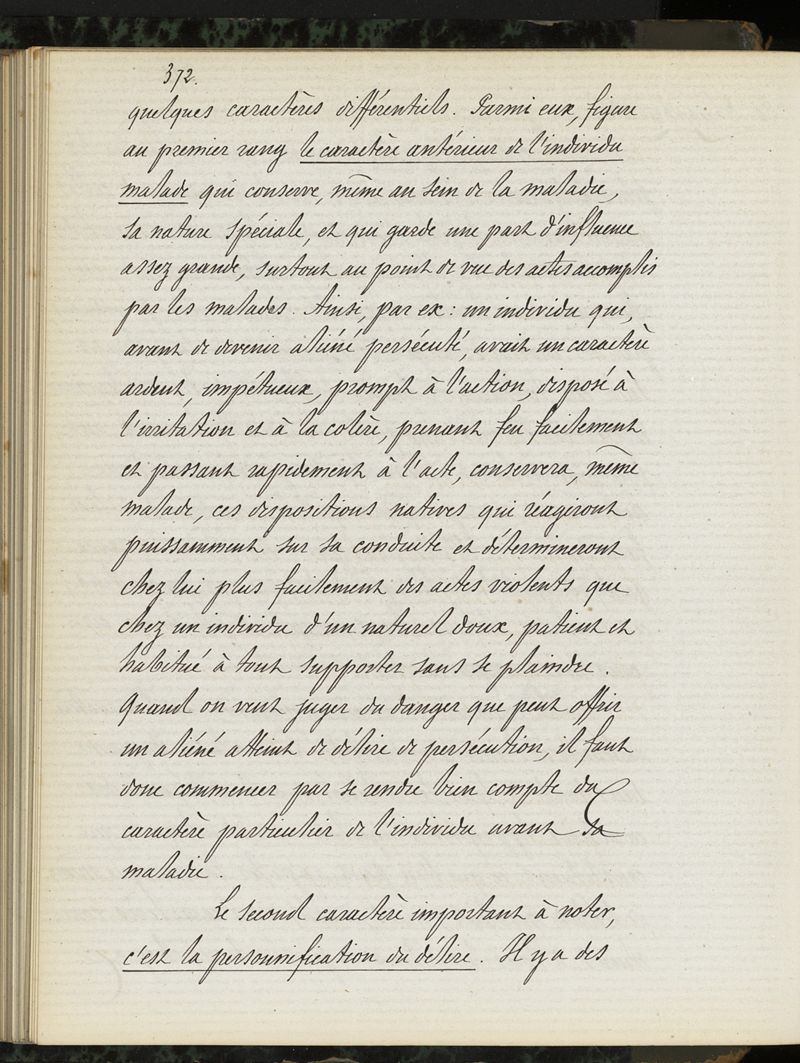 372.
quelques caractères différentiels. Parmi eux, figure
au premier rang le caractère antérieur de l'individu
malade qui conserve, même au sein de la maladie,
sa nature spéciale, et qui garde une part d'influence
assez grande, surtout au point de vue des actes accomplis
par les malades. Ainsi, par ex: un individu qui,
avant de devenir aliéné persécuté, avait un caractère
ardent, impétueux, prompt à l'action, disposé à
l'irritation et à la colère, prenant feu facilement
et passant rapidement à l'acte, conservera, même
malade, ces dispositions natives qui réagiront
puissamment sur sa conduite et détermineront
chez lui plus facilement des actes violents que
chez un individu d'un naturel doux, patient et
habitué à tout supporter sans se plaindre.
Quand on veut juger du danger que peut offrir
un aliéné atteint de délire de persécution, il faut
donc commencer par se rendre bien compte du
caractère particulier de l'individu avant sa
maladie.
Le second caractère important à noter,
c'est la personnification du délire. Il y a des